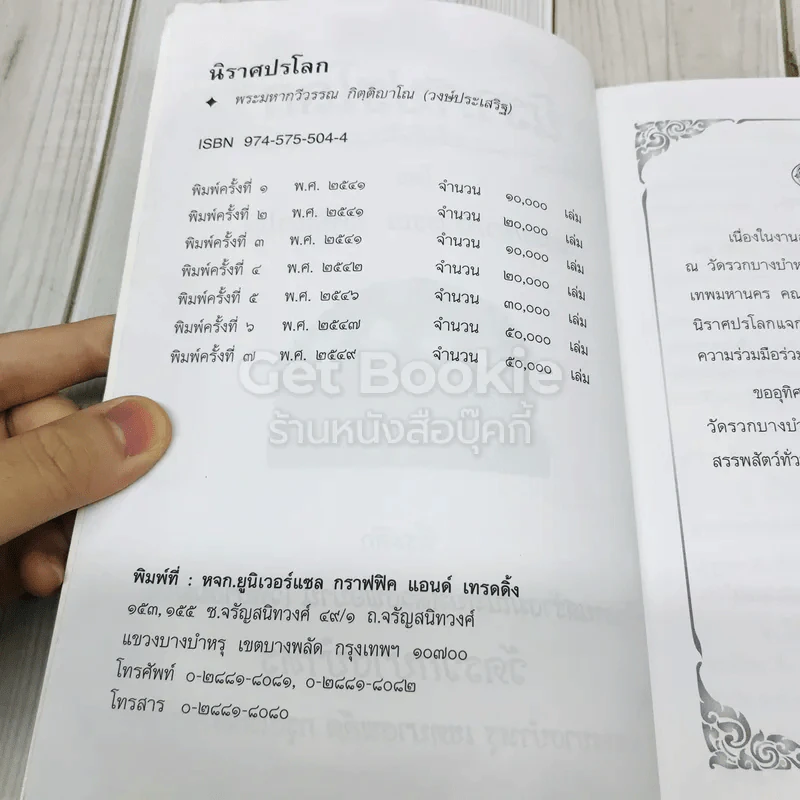 นิราศปรโลก
✦ พระมหากวีวรรณ กิตฺติญาโณ (วงษ์ประเสริฐ)
ISBN 974-575-504-4
พิมพ์ครั้งที่ ๑ พ.ศ. ๒๕๔๑ จำนวน ๑๐,๐๐๐ เล่ม
พิมพ์ครั้งที่ ๒ พ.ศ. ๒๕๔๑ จำนวน ๒๐,๐๐๐ เล่ม
พิมพ์ครั้งที่ ๓ พ.ศ. ๒๕๔๑ จำนวน ๑๐,๐๐๐ เล่ม
พิมพ์ครั้งที่ ๔ พ.ศ. ๒๕๔๒ จำนวน ๒๐,๐๐๐ เล่ม
พิมพ์ครั้งที่ ๕ พ.ศ. ๒๕๔๖ จำนวน ๓๐,๐๐๐ เล่ม
พิมพ์ครั้งที่ ๖ พ.ศ. ๒๕๔๗ จำนวน ๕๐,๐๐๐ เล่ม
พิมพ์ครั้งที่ ๗ พ.ศ. ๒๕๔๙ จำนวน ๕๐,๐๐๐ เล่ม
Get Bookie
ร้านหนังสือบุ๊คกี้
พิมพ์ที่ : หจก.ยูนิเวอร์แซล กราฟฟิค แอนด์ เทรดดิ้ง
๑๕๓,๑๕๕ ซ.จรัญสนิทวงศ์ ๔๙/๑ ถ.จรัญสนิทวงศ์
แขวงบางบำหรุ เขตบางพลัด กรุงเทพฯ ๑๐๗๐๐
โทรศัพท์ ๐-๒๘๘๑-๘๐๘๑, ๐-๒๘๘๑-๘๐๘๒
โทรสาร ๐-๒๘๘๑-๘๐๘๐
เนื่องในงาน
ณ วัดรวกบางบำห
เทพมหานคร คณ
นิราศปรโลกแจก
ความร่วมมือร่วม
ขออุทิศ
วัดรวกบางบำ
สรรพสัตว์ทั่ว